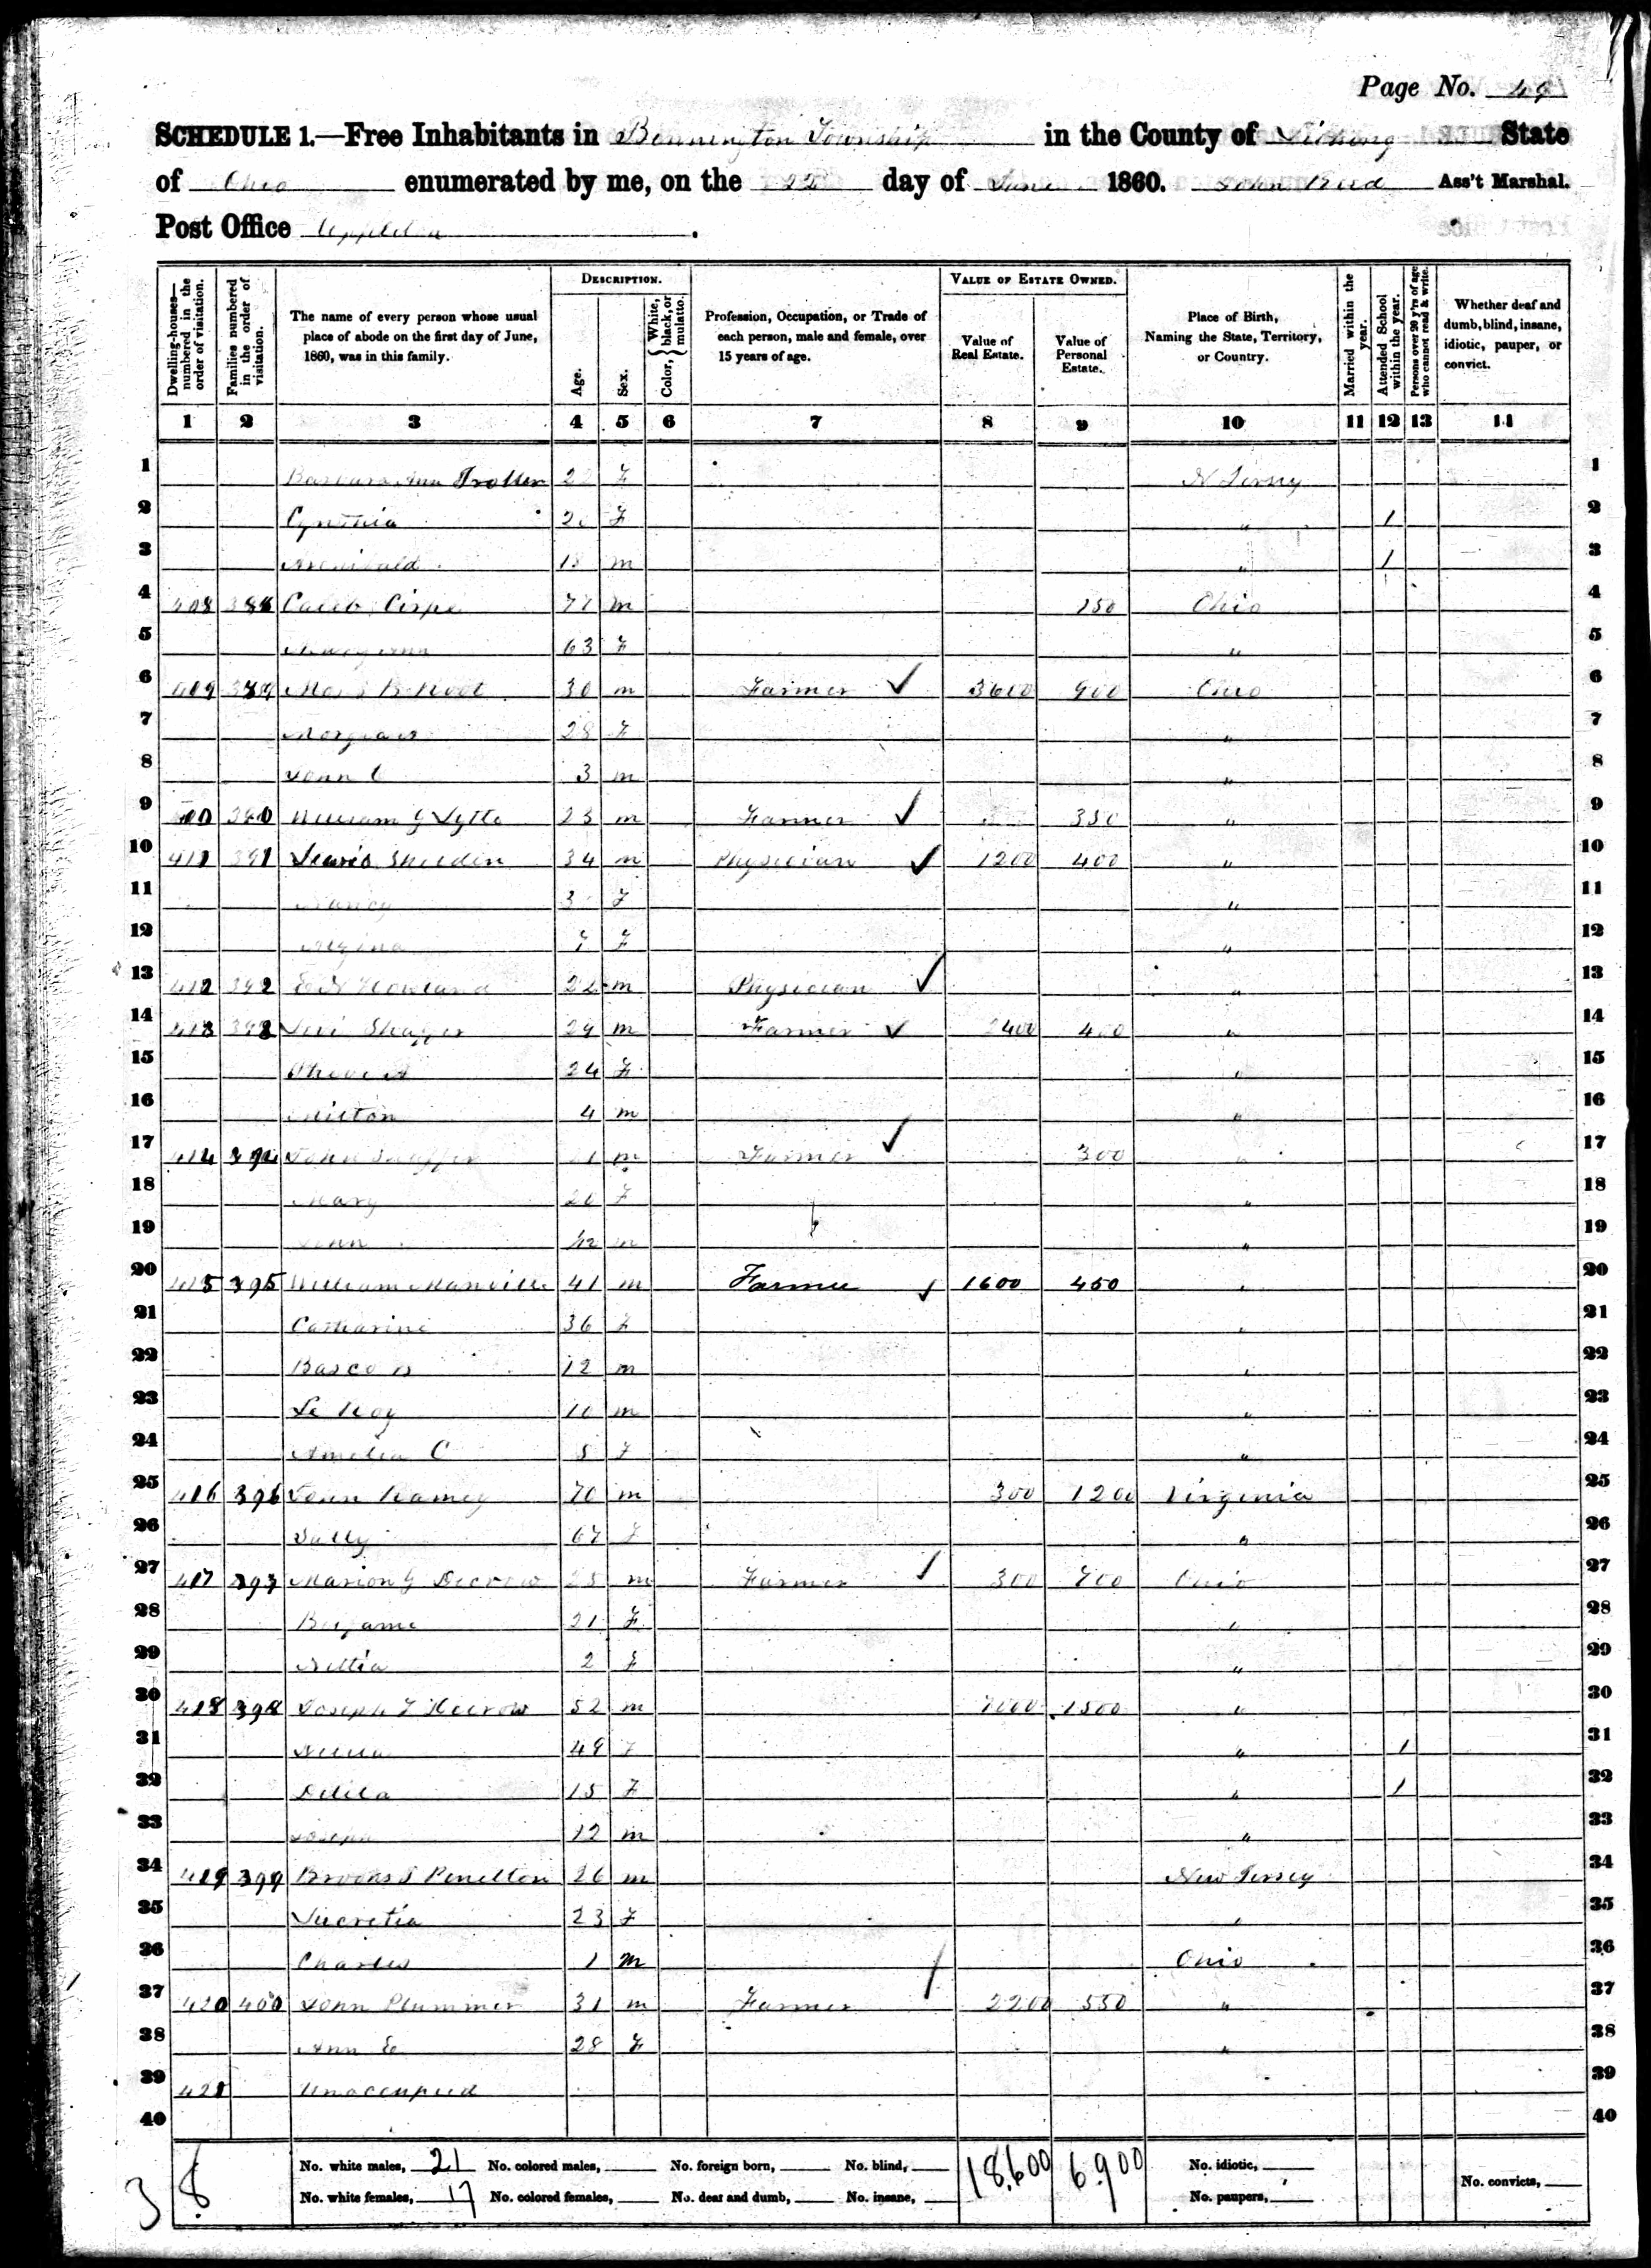 Page No. 49
SCHEDULE 1.—Free Inhabitants in Bennington Township in the County of Licking State
of Ohio enumerated by me, on the 22 day of June 1860. John Reed Ass't Marshal.
Post Office Appleton.
Dwelling-houses—numbered in the order of visitation. Families numbered in the order of visitation. The name of every person whose usual place of abode on the first day of June, 1860, was in this family. DESCRIPTION. Age. Sex. Color, { White, black, or mulatto. Profession, Occupation, or Trade of each person, male and female, over 15 years of age. VALUE OF ESTATE OWNED. Value of Real Estate. Value of Personal Estate. Place of Birth, Naming the State, Territory, or Country. Married within the year. Attended School within the year. Persons over 20 y'rs of age who cannot read & write. Whether deaf and dumb, blind, insane, idiotic, pauper, or convict.
1 2 3 4 5 6 7 8 9 10 11 12 13 14
1 Barbara Ann Trotter 22 F N Jersey 1
2 Cynthia F " 1 2
3 Archibald m " 1 3
4 408 388 Caleb m 150 Ohio 4
5 63 F " 5
6 409 389 Root 30 m Farmer ✓ 3600 900 Ohio 6
7 28 F " 7
8 John C 3 m " 8
9 410 390 William G Lytle 25 m Farmer ✓ 350 " 9
10 411 391 Lewis 34 m Physician ✓ 1200 400 " 10
11 Nancy F " 11
12 F " 12
13 412 392 Howland m Physician ✓ " 13
14 413 393 Levi Shaffer 29 m Farmer ✓ 2400 400 " 14
15 24 F " 15
16 Milton 4 m " 16
17 414 394 John Shaffer m Farmer ✓ 300 " 17
18 Mary 20 F " 18
19 John m " 19
20 415 395 William Manville 41 m Farmer ✓ 1600 450 " 20
21 Catharine 36 F " 21
22 Bascom 12 m " 22
23 Le Roy 10 m " 23
24 Amelia C F " 24
25 416 396 John Ramey 70 m 300 1200 Virginia 25
26 Sally 67 F " 26
27 417 397 Marion G Decrow 25 m Farmer ✓ 300 Ohio 27
28 21 F " 28
29 Nettia 2 F " 29
30 418 398 Joseph T Decrow 52 m 1500 " 30
31 49 F " 1 31
32 Delila 15 F " 1 32
33 Joseph 12 m " 33
34 419 399 Brooks S Penelton 26 m New Jersey 34
35 Lucretia 23 F " 35
36 Charles 1 m Ohio 36
37 420 400 John Plummer 31 m Farmer 2200 550 " 37
38 Ann E 28 F " 38
39 421 Unoccupied 39
40 40
38
No. white males, 21 No. colored males, No. foreign born, No. blind, 18.600 6.900 No. idiotic,
No. white females, 17 No. colored females, No. deaf and dumb, No. insane, No. paupers, No. convicts,